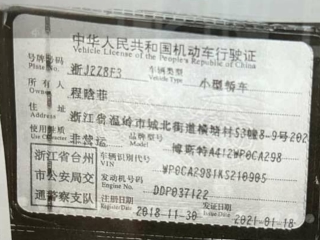 中华人民共和国机动车行驶证
Vehicle License of the People's Republic of China
号牌号码 Plate No. 浙JZ28F3 车辆类型 Vehicle Type 小型轿车
所有人 Owner 程晗菲
住址 Address 浙江省温岭市城北街道横塘村53幢8-9号202
使用性质 Use Character 非营运 品牌型号 Model 博斯特A412WP0CA298
浙江省台州 车辆识别代号 VIN WP0CA2981KS210905
市公安局交 发动机号码 Engine No. DDP037122
通警察支队 注册日期 Register Date 2018-11-30 2021-01-18